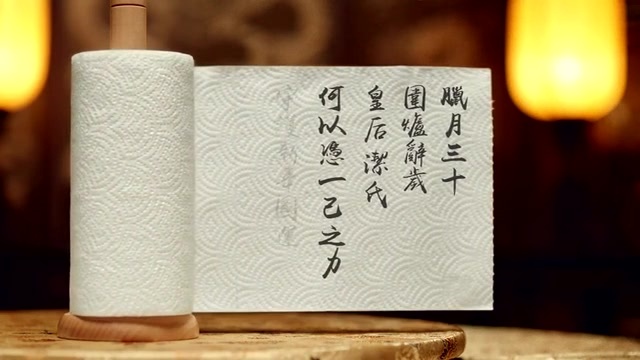 臘月三十
圍爐辭歲
皇后潔氏
何以憑一己之力